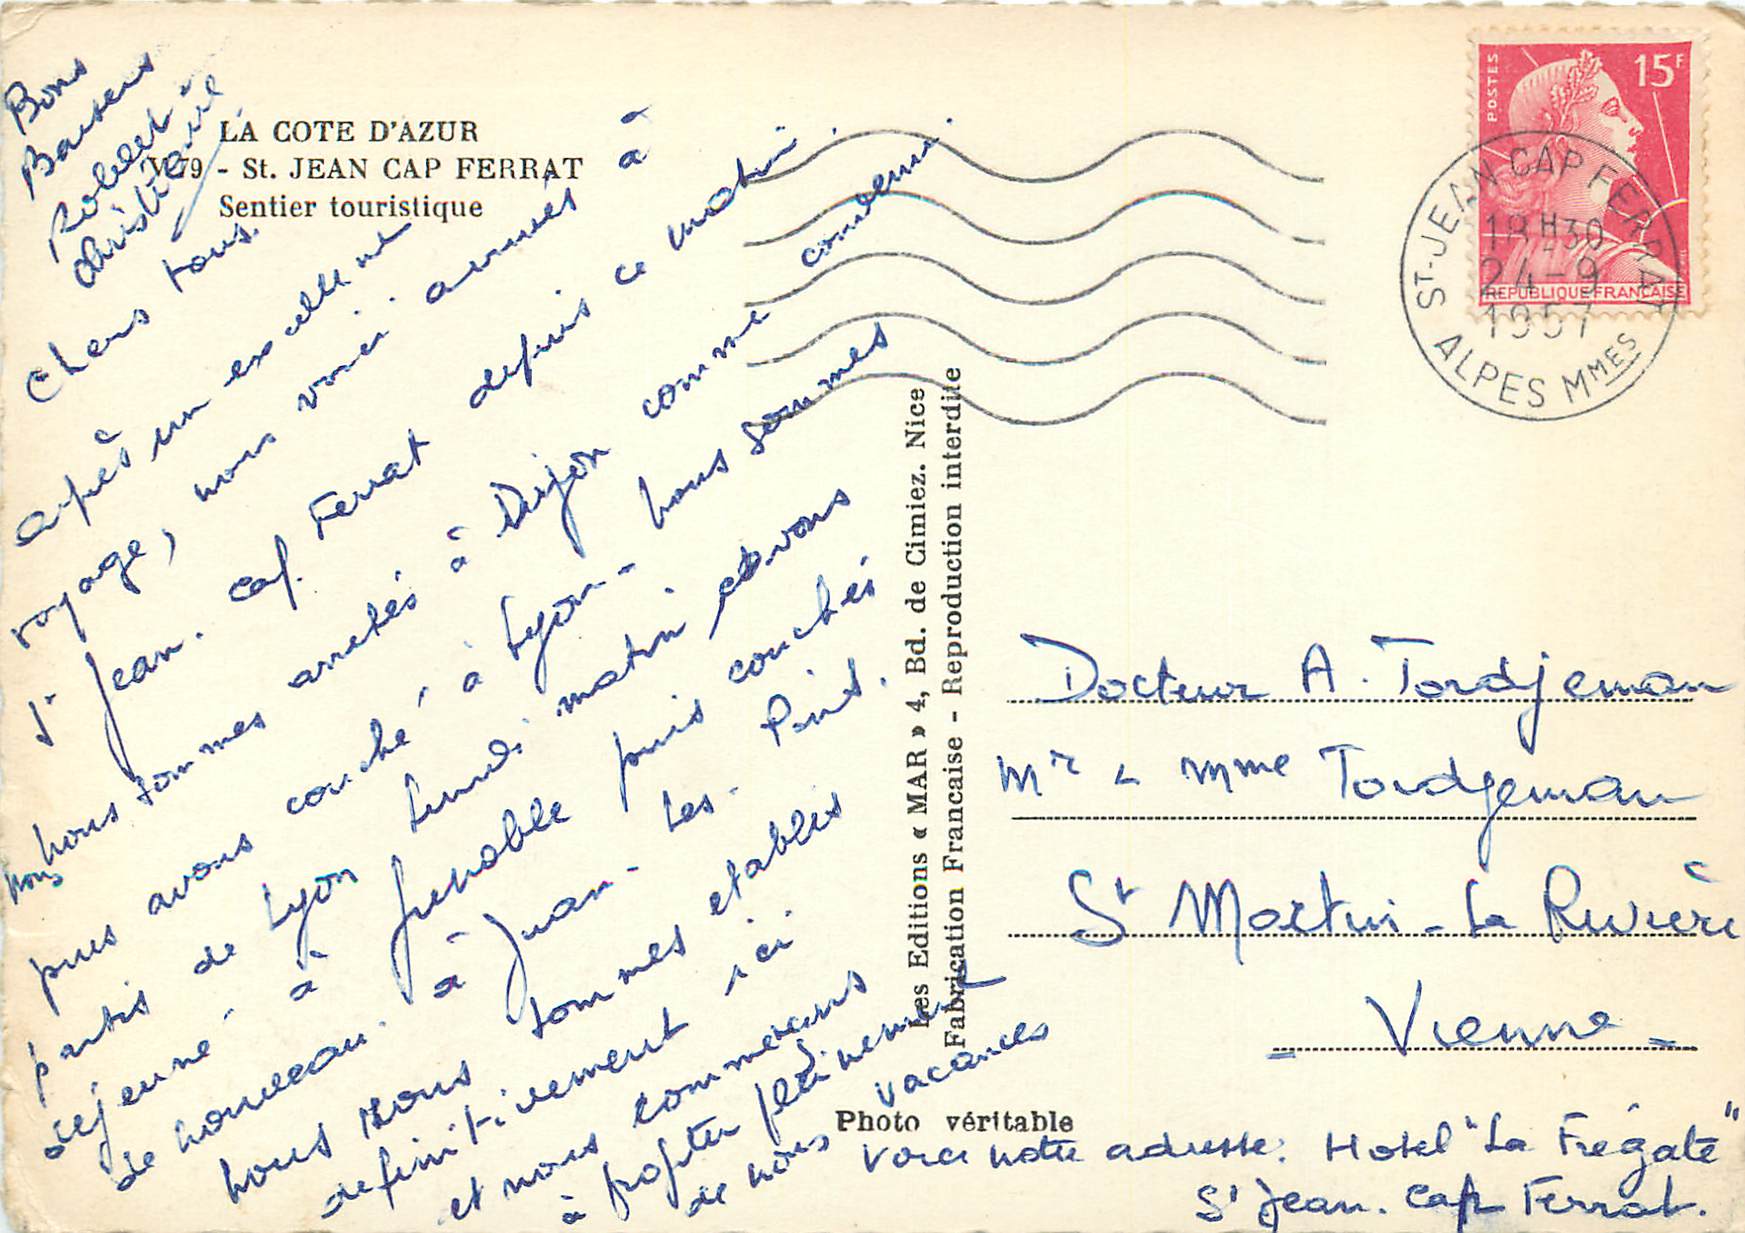 LA COTE D'AZUR
- St. JEAN CAP FERRAT
Sentier touristique
Chers tous.
après un excellent
voyage, nous voici arrivés à
St Jean. Cap. Ferrat depuis ce matin.
nous sommes arretés à Dijon comme convenu.
nous
puis avons couché à Lyon. nous sommes
partis de Lyon lundi matin et avons
dejeuné à Grenoble puis couchés
de nouveau à Juan. Les. Pins.
nous nous sommes etablis
definitivement ici
et nous commencons
à profiter pleinement
de nos vacances
Bons
Baisers
Robert
Christiane
Les Editions « MAR » 4, Bd. de Cimiez. Nice
Fabrication Francaise - Reproduction interdite
Photo véritable
POSTES
15F
REPUBLIQUE FRANCAISE
ST-JEAN CAP FERRAT
18H30
24-9
1957
ALPES MMES
Docteur A. Tordjeman
Mr & Mme Tordjeman
St Martin - La Rivière
- Vienne -
Voici notre adresse: Hotel "La Frégate"
St Jean. Cap Ferrat.